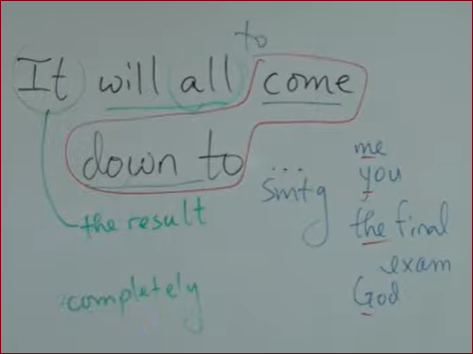 to
It will all come
down to
... smtg
me
you
the final
exam
God
the result
completely